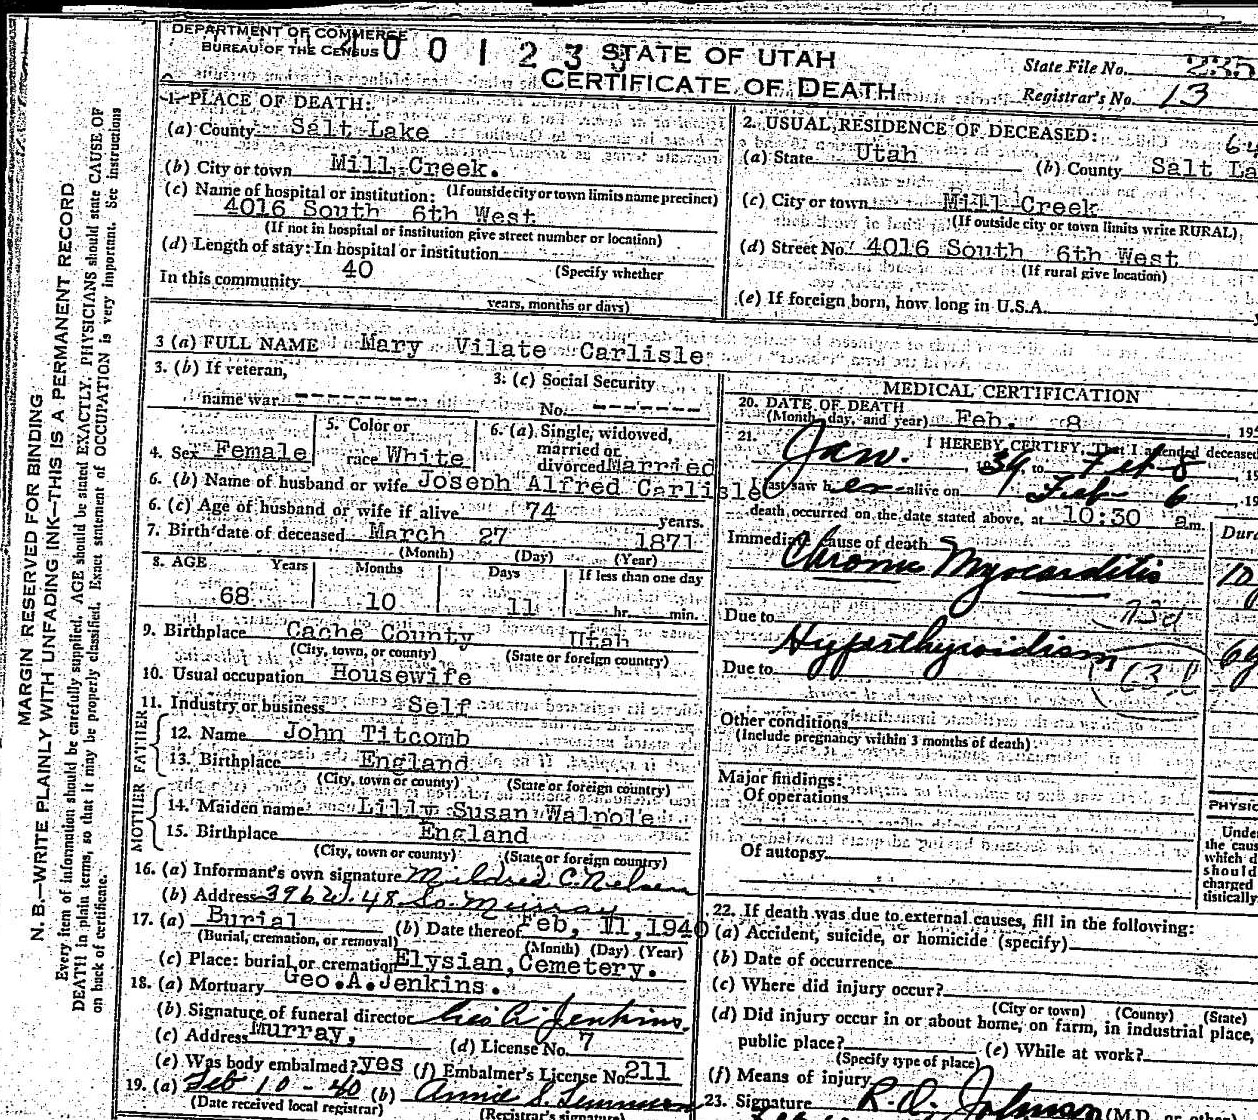 DEPARTMENT OF COMMERCE
BUREAU OF THE CENSUS
0 0 1 2 3
STATE OF UTAH
CERTIFICATE OF DEATH
State File No. 235
Registrar's No. 13
MARGIN RESERVED FOR BINDING
N. B.—WRITE PLAINLY WITH UNFADING INK—THIS IS A PERMANENT RECORD
Every item of information should be carefully supplied. AGE should be stated EXACTLY. PHYSICIANS should state CAUSE OF
DEATH in plain terms, so that it may be properly classified. Exact statement of OCCUPATION is very important. See instructions
on back of certificate.
1. PLACE OF DEATH:
(a) County Salt Lake
(b) City or town Mill Creek.
(c) Name of hospital or institution: (If outside city or town limits name precinct)
4016 South 6th West
(If not in hospital or institution give street number or location)
(d) Length of stay: In hospital or institution
(Specify whether
In this community 40
years, months or days)
2. USUAL RESIDENCE OF DECEASED:
64
(a) State Utah (b) County Salt La
(c) City or town Mill Creek
(If outside city or town limits write RURAL)
(d) Street No. 4016 South 6th West
(If rural give location)
(e) If foreign born, how long in U.S.A.
3 (a) FULL NAME Mary Vilate Carlisle
3. (b) If veteran,
name war -------
3. (c) Social Security
No. -------
4. Sex Female
5. Color or
race White
6. (a) Single, widowed,
married or
divorced Married
6. (b) Name of husband or wife Joseph Alfred Carlisle
6. (c) Age of husband or wife if alive 74 years.
7. Birth date of deceased March 27 1871
(Month) (Day) (Year)
8. AGE Years Months Days If less than one day
68 10 11 hr. min.
9. Birthplace Cache County Utah
(City, town, or county) (State or foreign country)
10. Usual occupation Housewife
11. Industry or business Self
FATHER
12. Name John Titcomb
13. Birthplace England
(City, town or county) (State or foreign country)
MOTHER
14. Maiden name Lilly Susan Walpole
15. Birthplace England
(City, town or county) (State or foreign country)
16. (a) Informant's own signature Mildred C. Nelsen
(b) Address 396 W. 48 So. Murray
17. (a) Burial (b) Date thereof Feb, 11, 1940
(Burial, cremation, or removal) (Month) (Day) (Year)
(c) Place: burial or cremation Elysian, Cemetery.
18. (a) Mortuary Geo. A. Jenkins.
(b) Signature of funeral director Geo A Jenkins.
(c) Address Murray, (d) License No. 7
(e) Was body embalmed? yes (f) Embalmer's License No. 211
19. (a) Feb 10 - 40 (b) Annie S.
(Date received local registrar) (Registrar's signature)
MEDICAL CERTIFICATION
20. DATE OF DEATH
(Month, day, and year) Feb. 8, 194
21. I HEREBY CERTIFY, That I attended deceased
Jan. 39, to Feb 8, 19
I last saw her alive on Feb 6, 19
death occurred on the date stated above, at 10:30 a m.
Immediate cause of death Dura
Chronic Myocarditis 10 y
Due to 93d
Hyperthyroidism 6 y
Due to
Other conditions
(Include pregnancy within 3 months of death)
Major findings:
Of operations
Of autopsy
PHYSIC
Unde
the caus
which d
should
charged
tistically.
22. If death was due to external causes, fill in the following:
(a) Accident, suicide, or homicide (specify)
(b) Date of occurrence
(c) Where did injury occur?
(City or town) (County) (State)
(d) Did injury occur in or about home, on farm, in industrial place,
public place? (e) While at work?
(Specify type of place)
(f) Means of injury
23. Signature (M.D. or other)